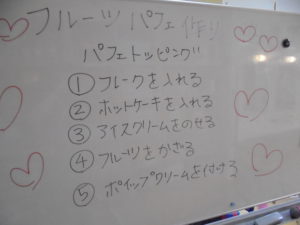 フルーツパフェ作り
パフェトッピング
① フレークを入れる
② ホットケーキを入れる
③ アイスクリームをのせる
④ フルーツをかざる
⑤ ホイップクリームを付ける